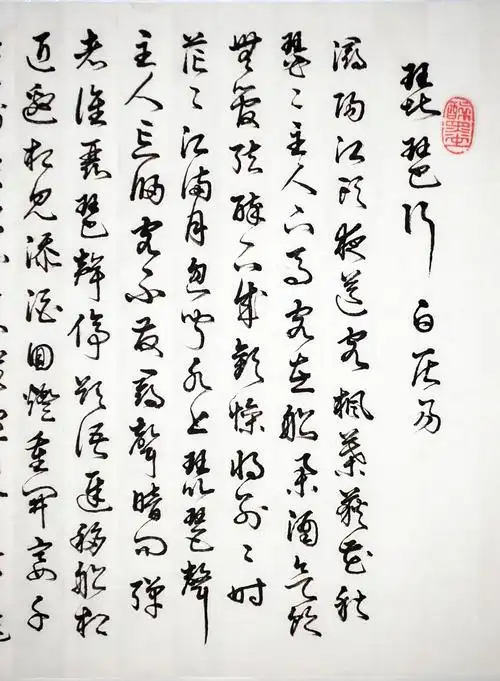 琵琶行 白居易
潯陽江頭夜送客楓葉荻花秋
瑟〻主人下馬客在船舉酒欲飲
無管弦醉不成歡慘將別〻時
茫〻江浸月忽聞水上琵琶聲
主人忘歸客不發尋聲暗問彈
者誰琵琶聲停欲語遲移船相
近邀相見添酒回燈重開宴千